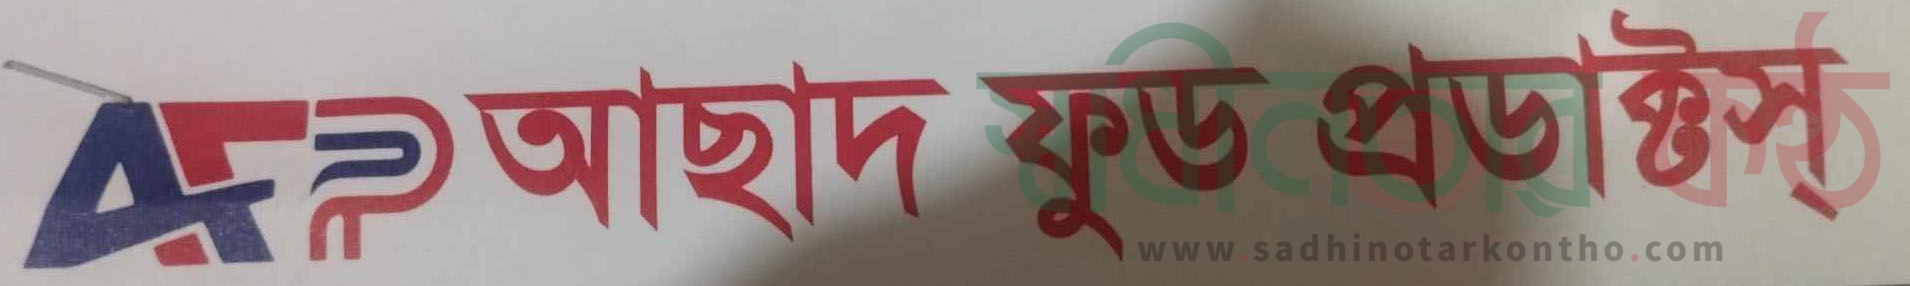 AFP আছাদ ফুড প্রডাক্টস্
স্বাধীনতার কণ্ঠ
www.sadhinotarkontho.com